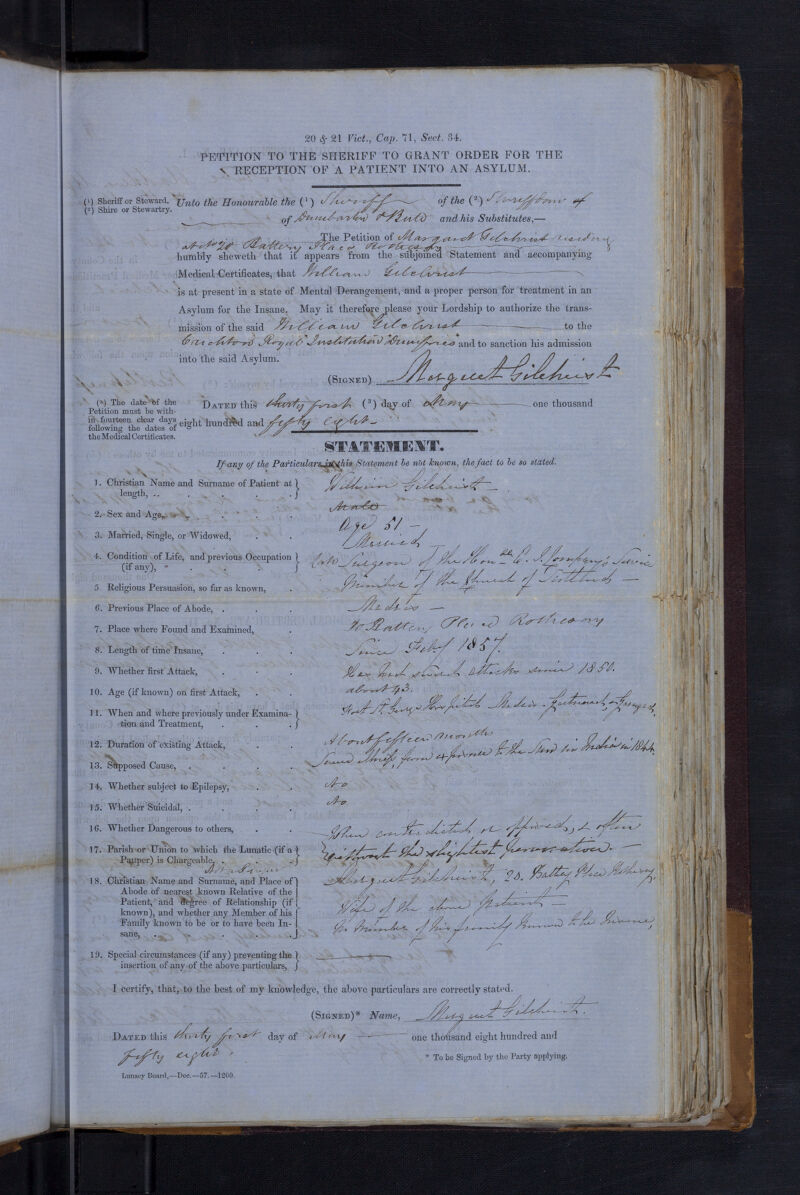 20 & 21 Vict., Cap. 71, Sect. 34.
PETITION TO THE SHERIFF TO GRANT ORDER FOR THE
RECEPTION OF A PATIENT INTO AN ASYLUM.
(1) Sheriff or Steward.
(2) Shire or Stewartry.
Unto the Honourable the (1) Sheriff of the (2) Sheriffdom of
of Dumbarton & Bute and his Substitutes,—
The Petition of Margaret Gilchrist residing
at No 20 Battery Place Rothesay
humbly sheweth that it appears from the subjoined Statement and accompanying
Medical Certificates, that William Gilchrist
is at present in a state of Mental Derangement, and a proper person for treatment in an
Asylum for the Insane. May it therefore please your Lordship to authorize the trans-
mission of the said William Gilchrist to the
Crichton Royal Institution Dumfries and to sanction his admission
into the said Asylum.
(SIGNED) Margaret Gilchrist
(3) The date of the
Petition must be with-
in fourteen clear days
following the dates of
the Medical Certificates.
DATED this thirty first (3) day of May one thousand
eight hundred and fifty eight
STATEMENT.
If any of the Particulars in this Statement be not known, the fact to be so stated.
1. Christian Name and Surname of Patient at
length, William Gilchrist
2. Sex and Age, Male
Age 51
3. Married, Single, or Widowed, Married
4. Condition of Life, and previous Occupation
(if any), late Surgeon of the Honble E. I. Company's Service
5. Religious Persuasion, so far as known, Member of the Church of Scotland
6. Previous Place of Abode, Madras
7. Place where Found and Examined, 20 Battery Place Rothesay
8. Length of time Insane, Since Feby 1857
9. Whether first Attack, Has had several attacks since 1850.
10. Age (if known) on first Attack, about 43.
11. When and where previously under Examina-
tion and Treatment, Fort St George Hospital Madras
12. Duration of existing Attack, About fifteen months
13. Supposed Cause, from exposure to the Sun in India in 1844
14. Whether subject to Epilepsy, No
15. Whether Suicidal, No
16. Whether Dangerous to others, When contradicted or opposed, & often
without the slightest provocation.
17. Parish or Union to which the Lunatic (if a
Pauper) is Chargeable,
18. Christian Name and Surname, and Place of
Abode of nearest known Relative of the
Patient, and degree of Relationship (if
known), and whether any Member of his
Family known to be or to have been In-
sane,
Margaret Gilchrist, 20. Battery Place Rothesay
Wife of the above patient
No Member of his family known to be Insane,
19. Special circumstances (if any) preventing the
insertion of any of the above particulars,
I certify, that, to the best of my knowledge, the above particulars are correctly stated.
(SIGNED)* Name, Margaret Gilchrist.
DATED this thirty first day of May one thousand eight hundred and
fifty eight.
* To be Signed by the Party applying.
Lunacy Board,—Dec.—57.—1200.